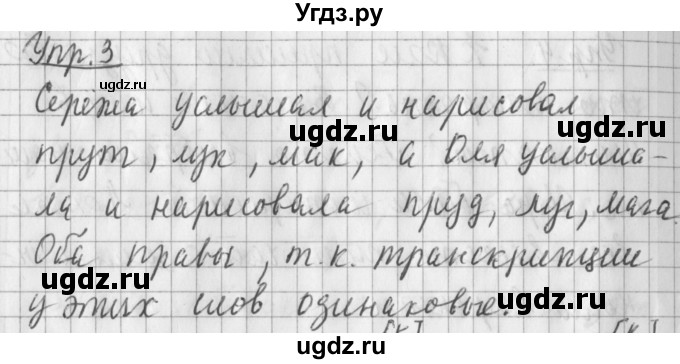 Угдз.ру
Упр. 3
Сережа услышал и нарисовал
прут, лук, мак, а Оля услыша-
ла и нарисовала пруд, луг, мага.
Оба правы, т.к. транскрипции
у этих слов одинаковые.
[к] [к]
ugdz.ru
ugdz.ru
ugdz.ru
ugdz.ru
ugdz.ru
ugdz.ru
ugdz.ru
ugdz.ru